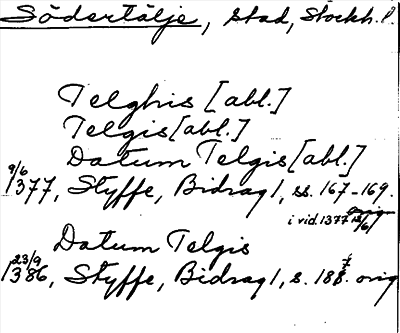 Södertälje, stad, Stockh. l.
Telghis [abl.]
Telgis [abl.]
Datum Telgis [abl.]
9/6
1377, Styffe, Bidrag 1, ss. 167-169.
orig
i vid. 1377
Datum Telgis
23/9
1386, Styffe, Bidrag 1, s. 188. orig